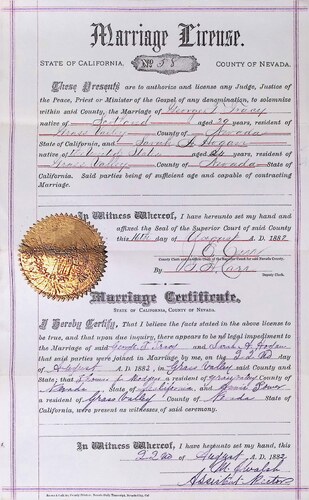 Marriage License.
STATE OF CALIFORNIA, No 58 COUNTY OF NEVADA.
These Presents are to authorize and license any Judge, Justice of
the Peace, Priest or Minister of the Gospel of any denomination, to solemnize
within said County, the Marriage of George
native of Scotland aged 39 years, resident of
Grass Valley County of Nevada
State of California, and Sarah A Hogan
native of State aged years, resident of
Grass Valley County of Nevada State of
California. Said parties being of sufficient age and capable of contracting
Marriage.
In Witness Whereof, I have hereunto set my hand and
affixed the Seal of the Superior Court of said County
this 16th day of August A. D. 1882
County Clerk and Ex-Officio Clerk of the Superior Court in and for Nevada County.
By Deputy Clerk.
Marriage Certificate.
STATE OF CALIFORNIA, COUNTY OF NEVADA.
I Hereby Certify, That I believe the facts stated in the above license to
be true, and that upon due inquiry, there appears to be no legal impediment to
the Marriage of said George and Sarah A Hogan
that said parties were joined in Marriage by me, on the 22nd day
of August A. D. 1882, in Grass Valley said County and
State; that a resident of Grass Valley County of
Nevada State of California and
a resident of Grass Valley County of Nevada State of
California, were present as witnesses of said ceremony.
In Witness Whereof, I have hereunto set my hand, this
22nd day of August A. D. 1882
Assistant Rector